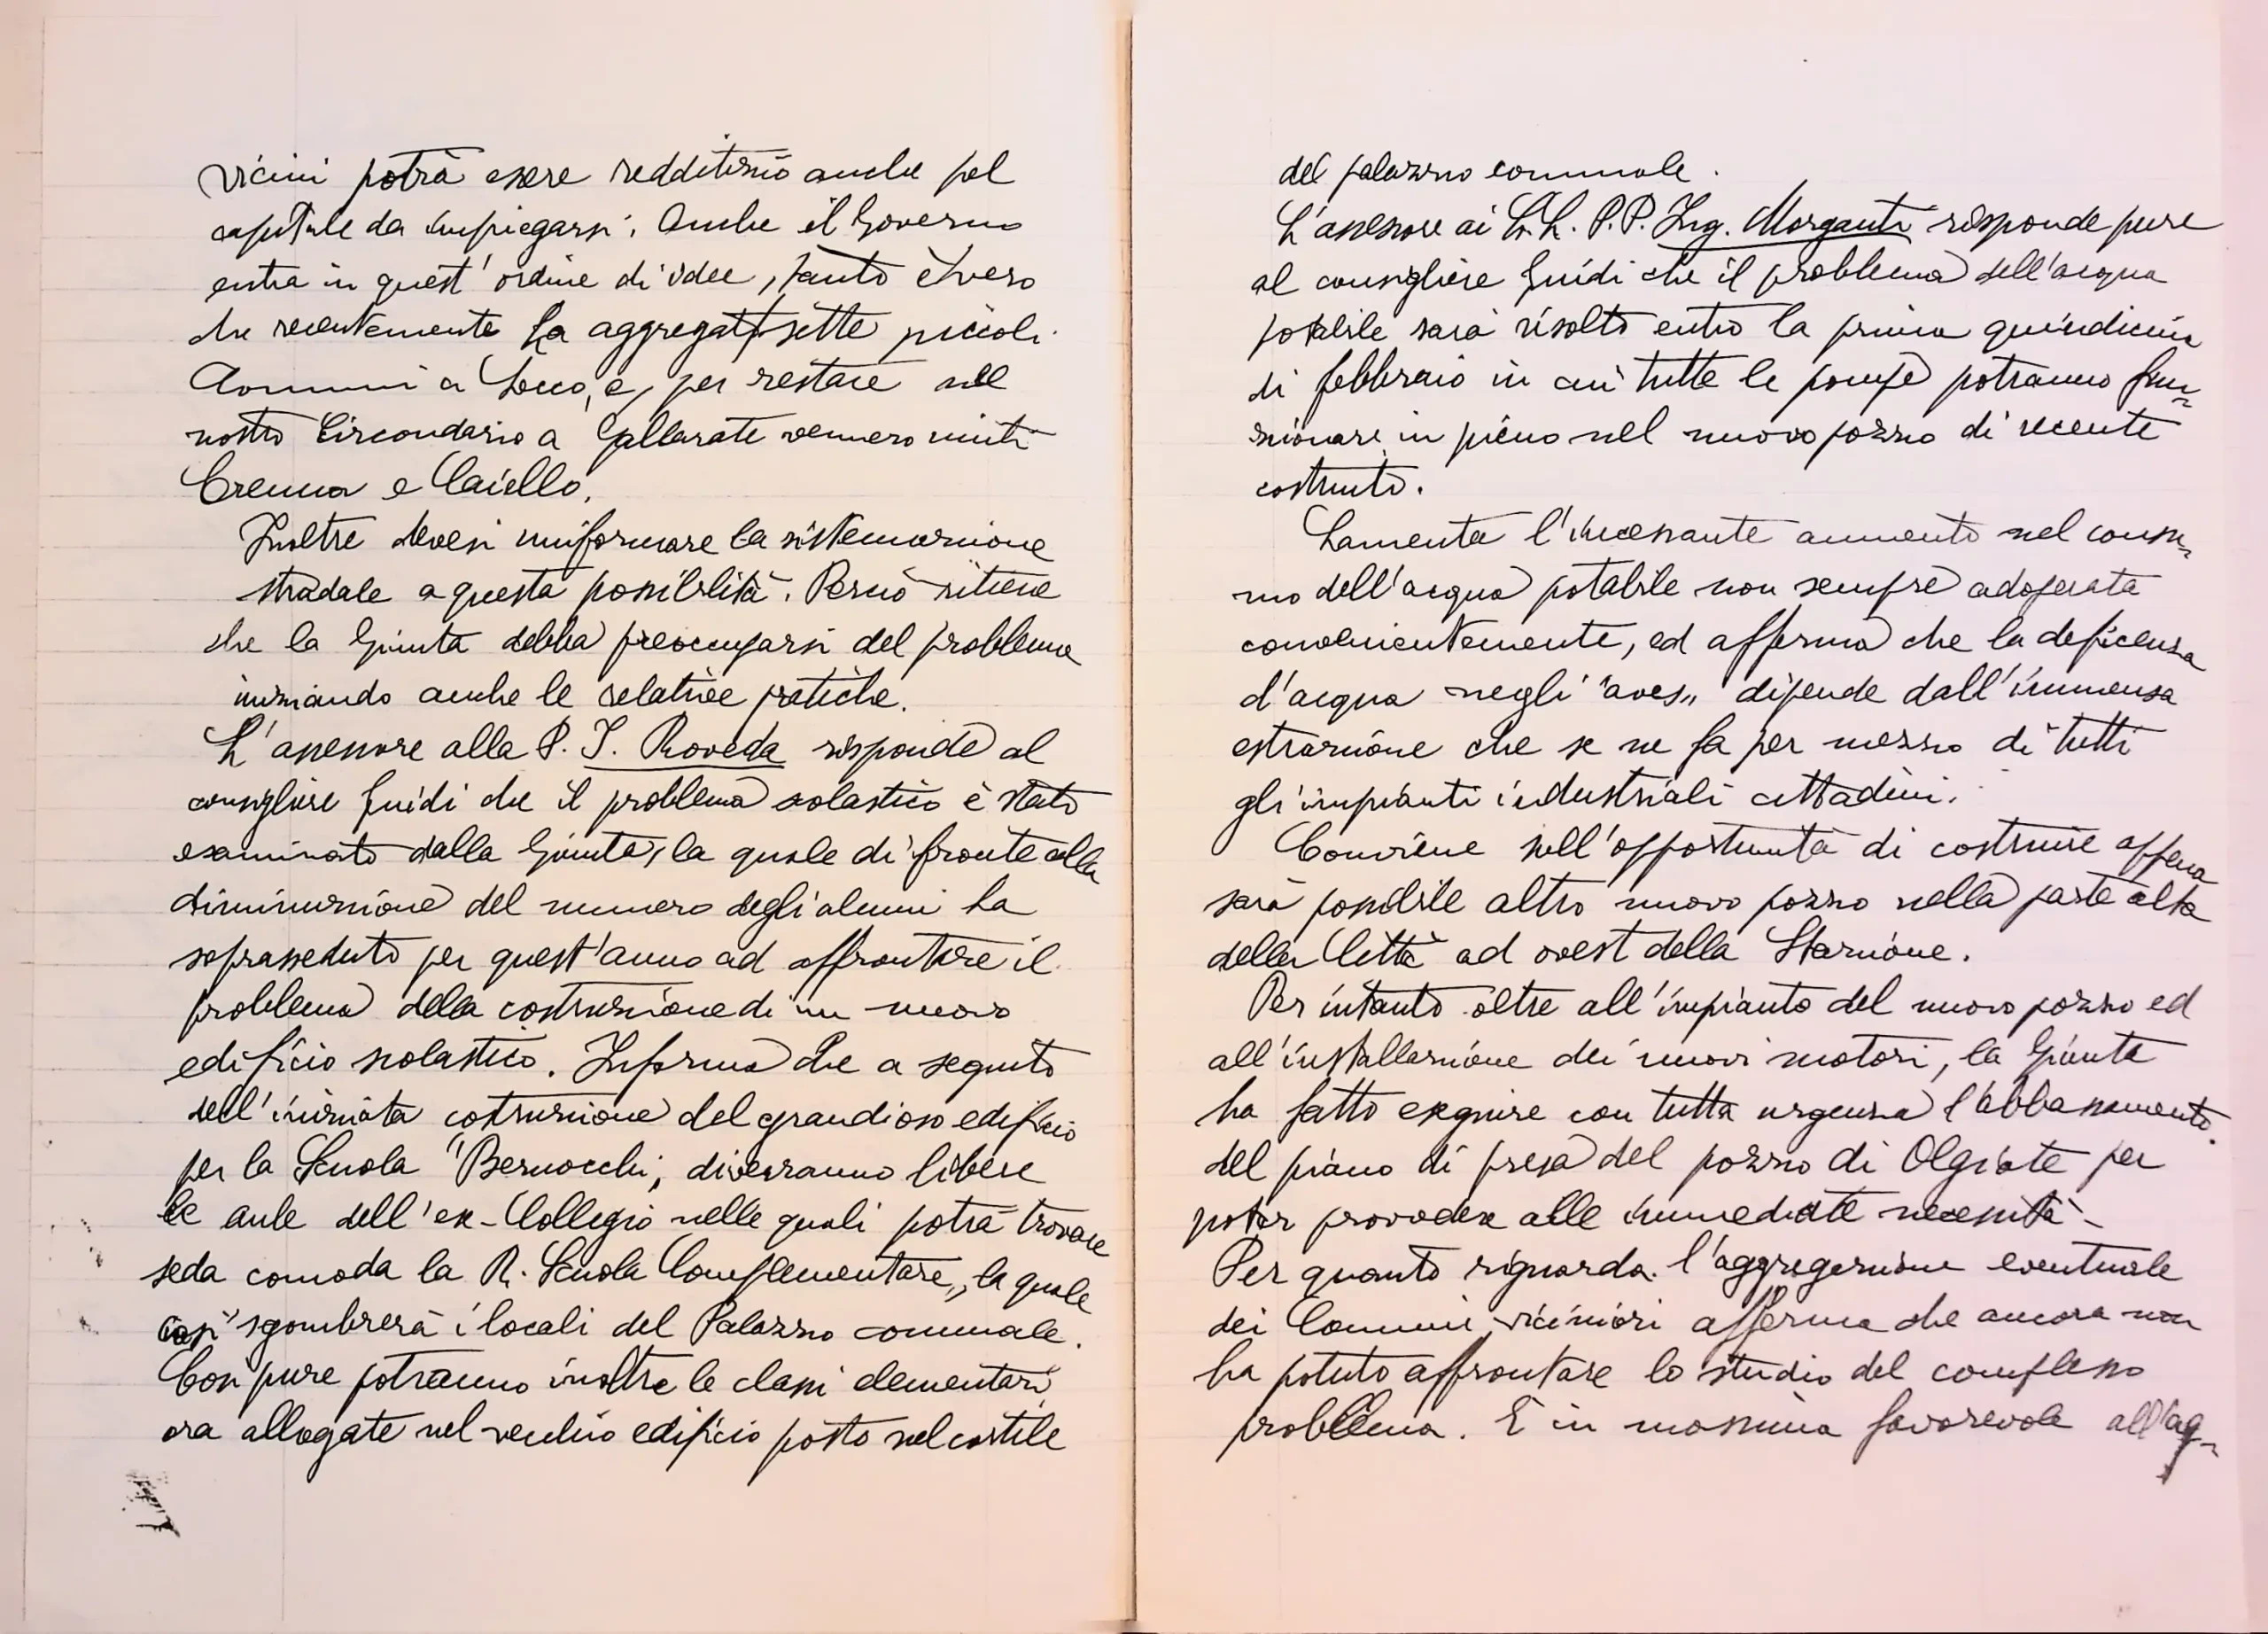 vicini potrà essere redditizio anche pel
capitale da impiegarsi. Anche il Governo
entra in quest'ordine di idee, tanto è vero
che recentemente ha aggregati sette piccoli
Comuni a Lecco, e, per restare nel
nostro Circondario a Gallarate vennero uniti
Crenna e Caiello.
Inoltre devesi uniformare la sistemazione
stradale a questa possibilità. Perciò ritiene
che la Giunta debba preoccuparsi del problema
iniziando anche le relative pratiche.
L'assessore alla P. I. Roveda risponde al
consigliere Guidi che il problema scolastico è stato
esaminato dalla Giunta, la quale di fronte alla
diminuzione del numero degli alunni ha
soprasseduto per quest'anno ad affrontare il
problema della costruzione di un nuovo
edificio scolastico. Informa che a seguito
dell'iniziata costruzione del grandioso edificio
per la Scuola "Bernocchi", diverranno libere
le aule dell'ex-Collegio nelle quali potrà trovare
seda comoda la R. Scuola Complementare, la quale
così sgombrerà i locali del Palazzo comunale.
Così pure potranno inoltre le classi elementari
ora allogate nel vecchio edificio posto nel cortile
del palazzo comunale.
L'assessore ai L.L. P.P. Ing. Morganti risponde pure
al consigliere Guidi che il problema dell'acqua
potabile sarà risolto entro la prima quindicina
di febbraio in cui tutte le pompe potranno fun-
zionare in pieno nel nuovo pozzo di recente
costruito.
Lamenta l'incessante aumento nel consu-
mo dell'acqua potabile non sempre adoperata
convenientemente, ed afferma che la deficenza
d'acqua negli "aves" dipende dall'immensa
estrazione che se ne fa per mezzo di tutti
gli impianti industriali cittadini.
Conviene sull'opportunità di costruire appena
sarà possibile altro nuovo pozzo nella parte alta
della Città ad ovest della Stazione.
Per intanto oltre all'impianto del nuovo pozzo ed
all'installazione dei nuovi motori, la Giunta
ha fatto eseguire con tutta urgenza l'abbassamento
del piano di presa del pozzo di Olgiate per
poter provvedere alle immediate necessità.
Per quanto riguarda l'aggregazione eventuale
dei Comuni viciniori afferma che ancora non
ha potuto affrontare lo studio del complesso
problema. È in massima favorevole all'ag-